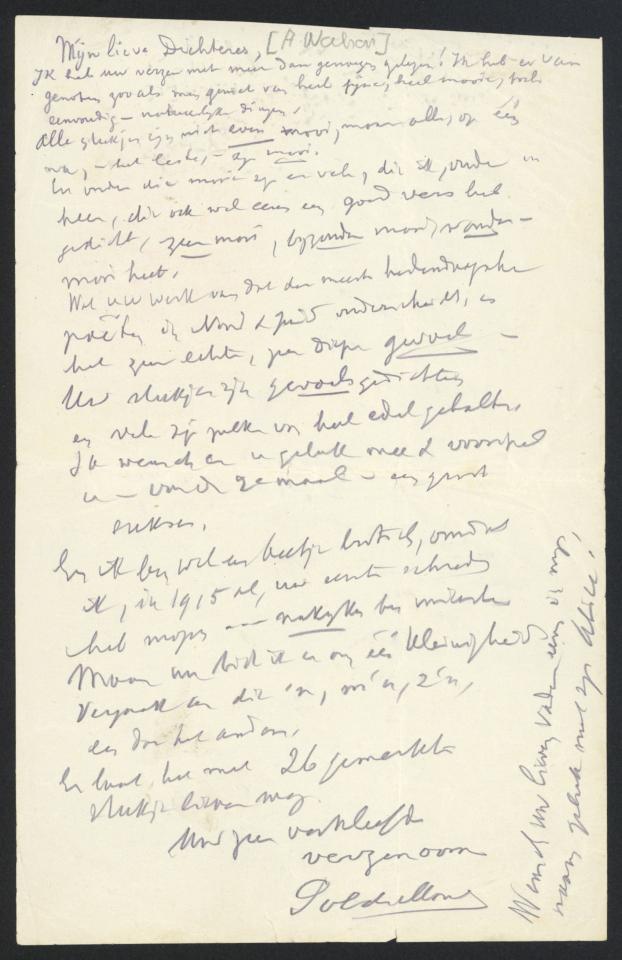 Mijn lieve Dichteres, [A Nahon]
Ik heb uw verzen met meer dan genoegen gelezen! Ik heb er van
genoten zooals men geniet van heel fijne, heel mooie, toch
eenvoudig – natuurlijke dingen.
Alle stukjes zijn niet even mooi, maar alle, op één
na, – het leste, – zijn mooi.
En onder die mooie zijn er vele, die ik, onder
heen, die ook wel eens een goed vers heb
gedicht, zeer mooi, bijzonder mooi, wonder-
mooi heet.
Wat uw werk van dat der meeste hedendaagsche
poëten in Noord & Zuid onderscheidt, is
het zeer echte, zeer diepe gevoel –
Uw stukjes zijn gevoelsgedichten
en vele zijn van heel edel gehalte.
Ik wensch er u geluk mee & voorspel
u – een groot
sukses.
En ik ben wel een beetje trotsch, omdat
ik, in 1915 al, uw eerste schreden
heb mogen
Maar nu bid ik u om één kleinigheid
Verzaak aan die 'n, m'n, z'n,
en dan het andere.
En laat het met 26 gemerkte
stukje liever weg.
Uw zeer verkleefde
verzenoom
Pol de Mont
Wensch uw lieven Vader eens in mijn
naam geluk met zijn Alice!